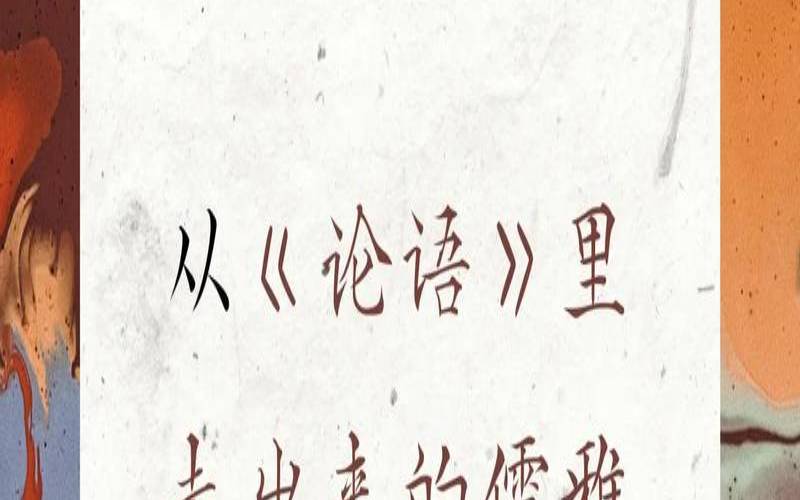 从《论语》里
走出来的儒雅